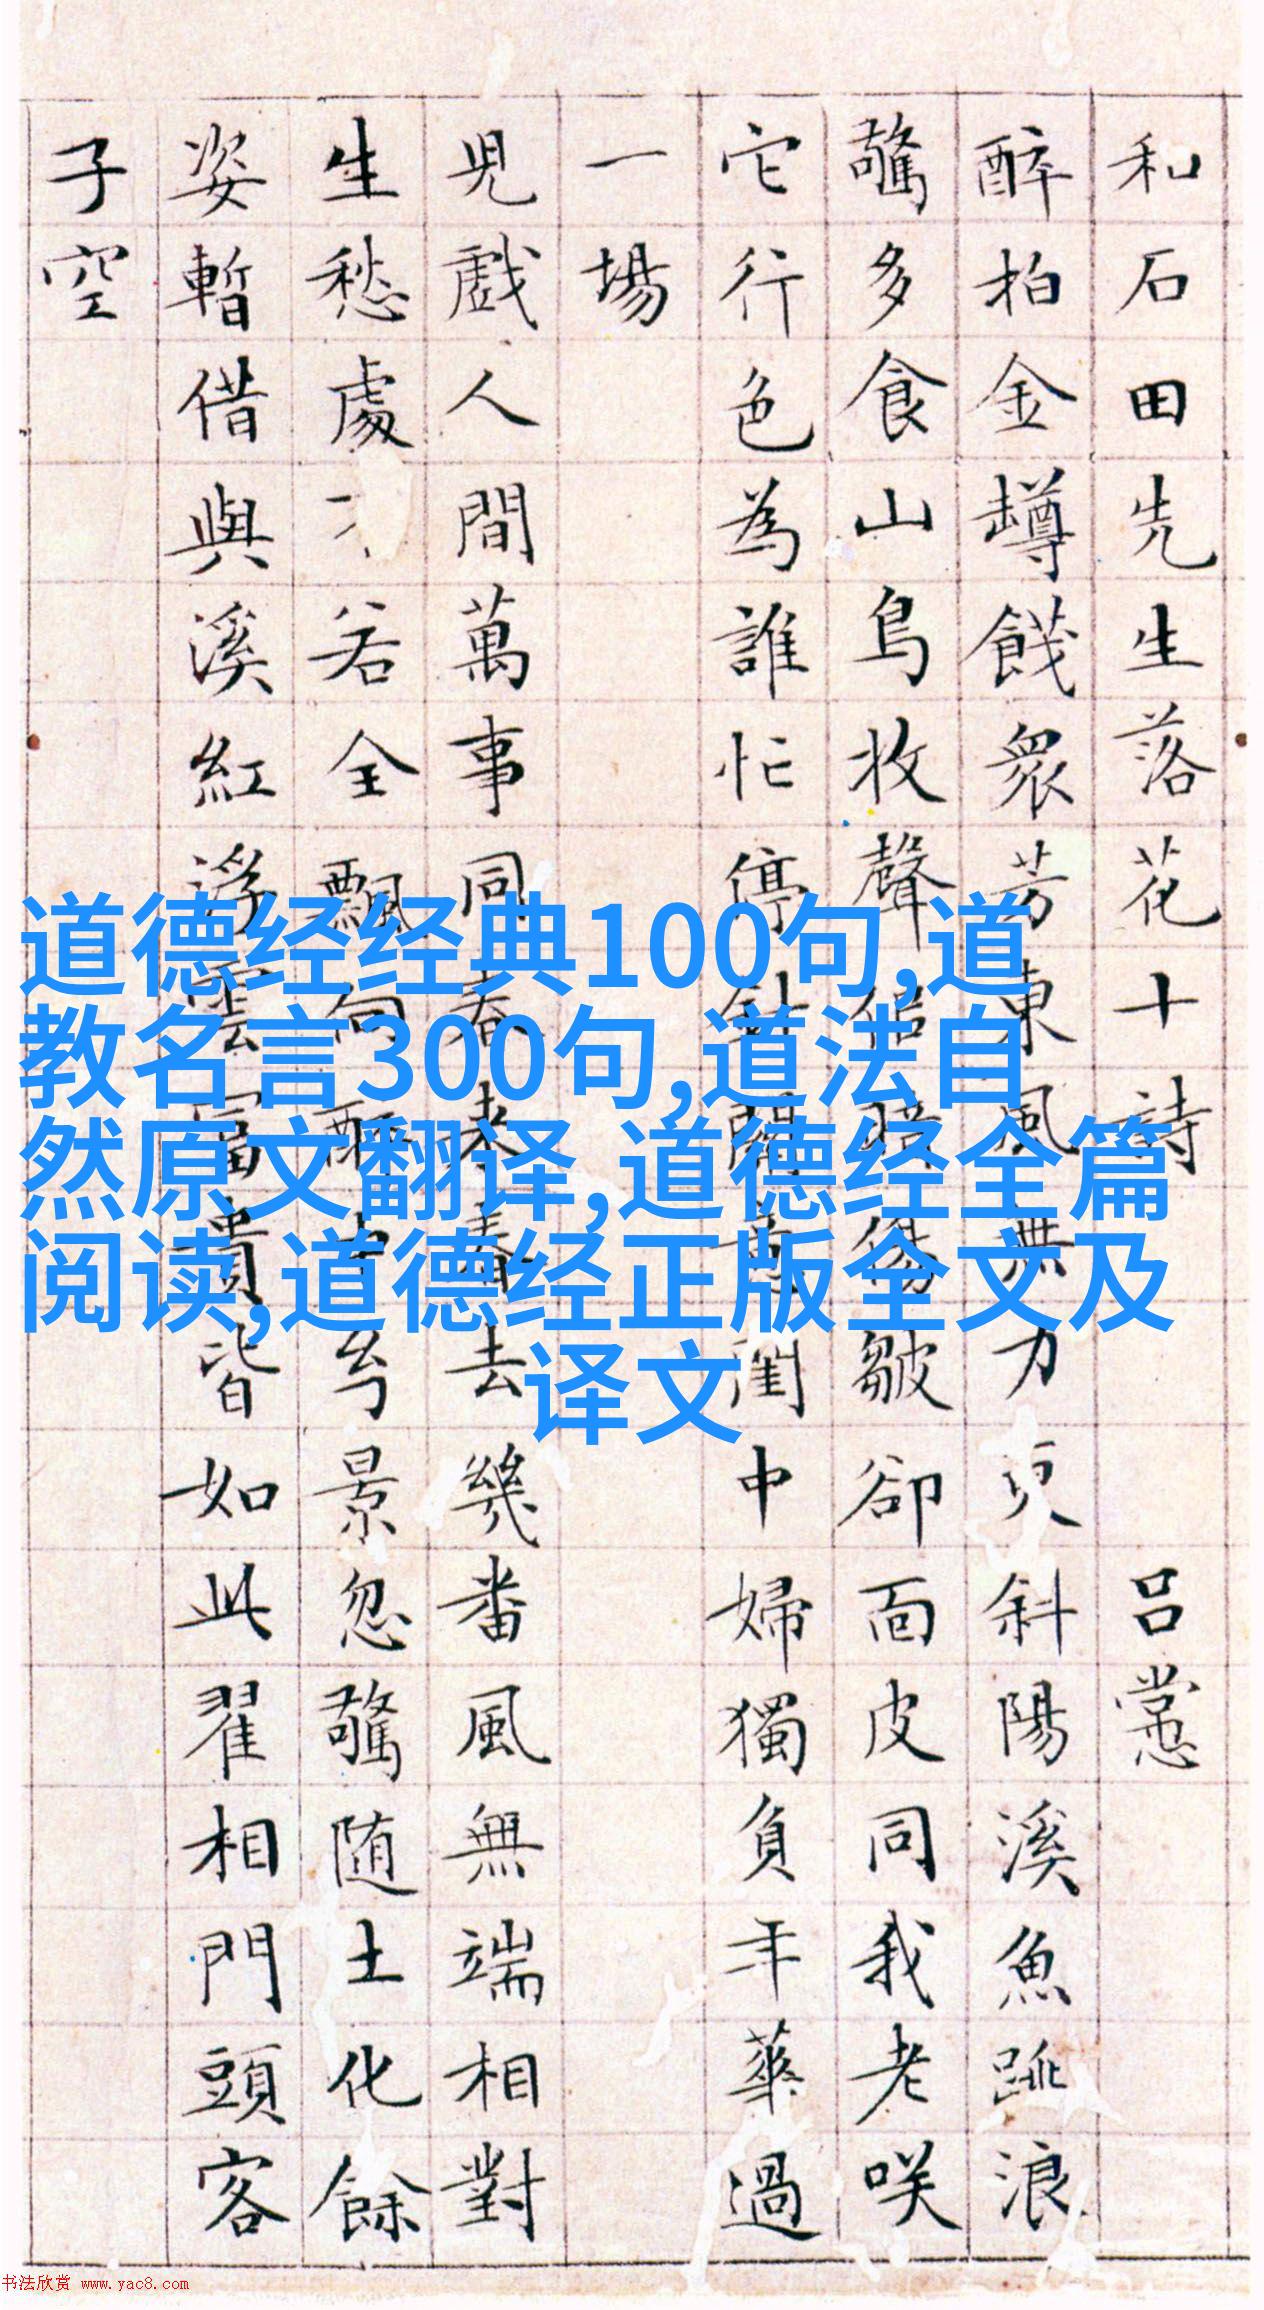 和石田先生落花十詩 吕㦂
醉拍金罇餞衆芳東風無力更斜陽溪魚跳浪
驚多食山鳥收聲倍暗傷皺卻面皮同我老咲
它行色為誰忙停針意閨中婦獨負年華過
一場
兒戲人間萬事同春來春去幾番風無端相對
生愁處若全飄向景忽驚随土化餘
姿暫借與溪紅浮雲富貴皆如此翟相門頭客
子空
道德经经典100句,道
教名言300句,道法自
然原文翻译,道德经全篇
阅读,道德经正版全文及
译文
书法欣赏 www.yac8.com